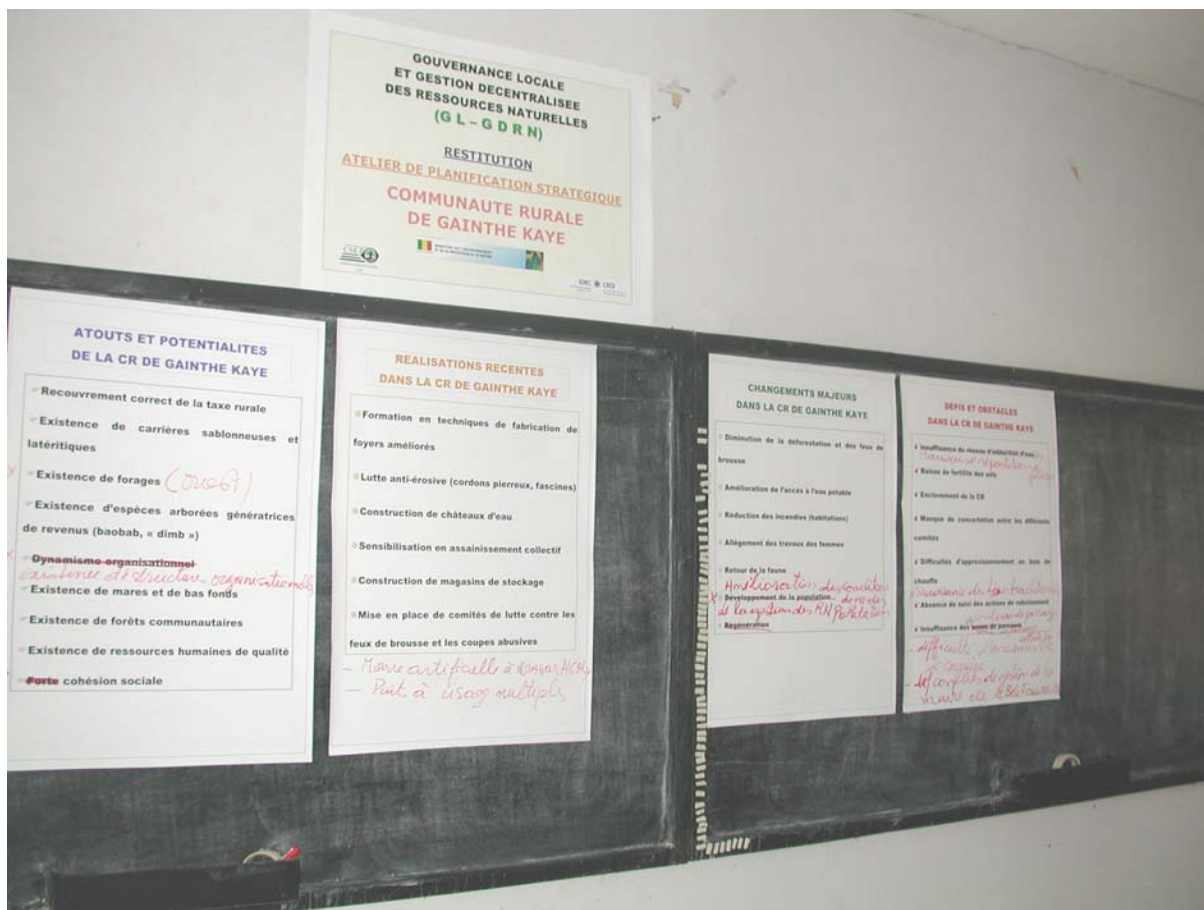 GOUVERNANCE LOCALE
ET GESTION DECENTRALISEE
DES RESSOURCES NATURELLES
(G L – G D R N)
RESTITUTION
ATELIER DE PLANIFICATION STRATEGIQUE
COMMUNAUTE RURALE
DE GAINTHE KAYE
ATOUTS ET POTENTIALITES
DE LA CR DE GAINTHE KAYE
Recouvrement correct de la taxe rurale
Existence de carrières sablonneuses et
latéritiques
Existence de forages
Existence d'espèces arborées génératrices
de revenus (baobab, « dimb »)
Dynamisme organisationnel
existence de structure organisationnelle
Existence de mares et de bas fonds
Existence de forêts communautaires
Existence de ressources humaines de qualité
Forte cohésion sociale
REALISATIONS RECENTES
DANS LA CR DE GAINTHE KAYE
Formation en techniques de fabrication de
foyers améliorés
Lutte anti-érosive (cordons pierreux, fascines)
Construction de châteaux d'eau
Sensibilisation en assainissement collectif
Construction de magasins de stockage
Mise en place de comités de lutte contre les
feux de brousse et les coupes abusives
– Mare artificielle à
– Puit à usage multiples
CHANGEMENTS MAJEURS
DANS LA CR DE GAINTHE KAYE
Diminution de la déforestation et des feux de
brousse
Amélioration de l'accès à l'eau potable
Réduction des incendies (habitations)
Allègement des travaux des femmes
Retour de la faune
Amélioration des conditions
Développement de la population de vie de
de la gestion des RN population
Regénération
DEFIS ET OBSTACLES
DANS LA CR DE GAINTHE KAYE
Insuffisance du réseau d'adduction d'eau
Mauvaise répartition
Baisse de fertilité des sols
Enclavement de la CR
Manque de concertation entre les différents
comités
Difficultés d'approvisionnement en bois de
chauffe
Absence de suivi des actions de reboisement
Insuffisance des zones de parcours